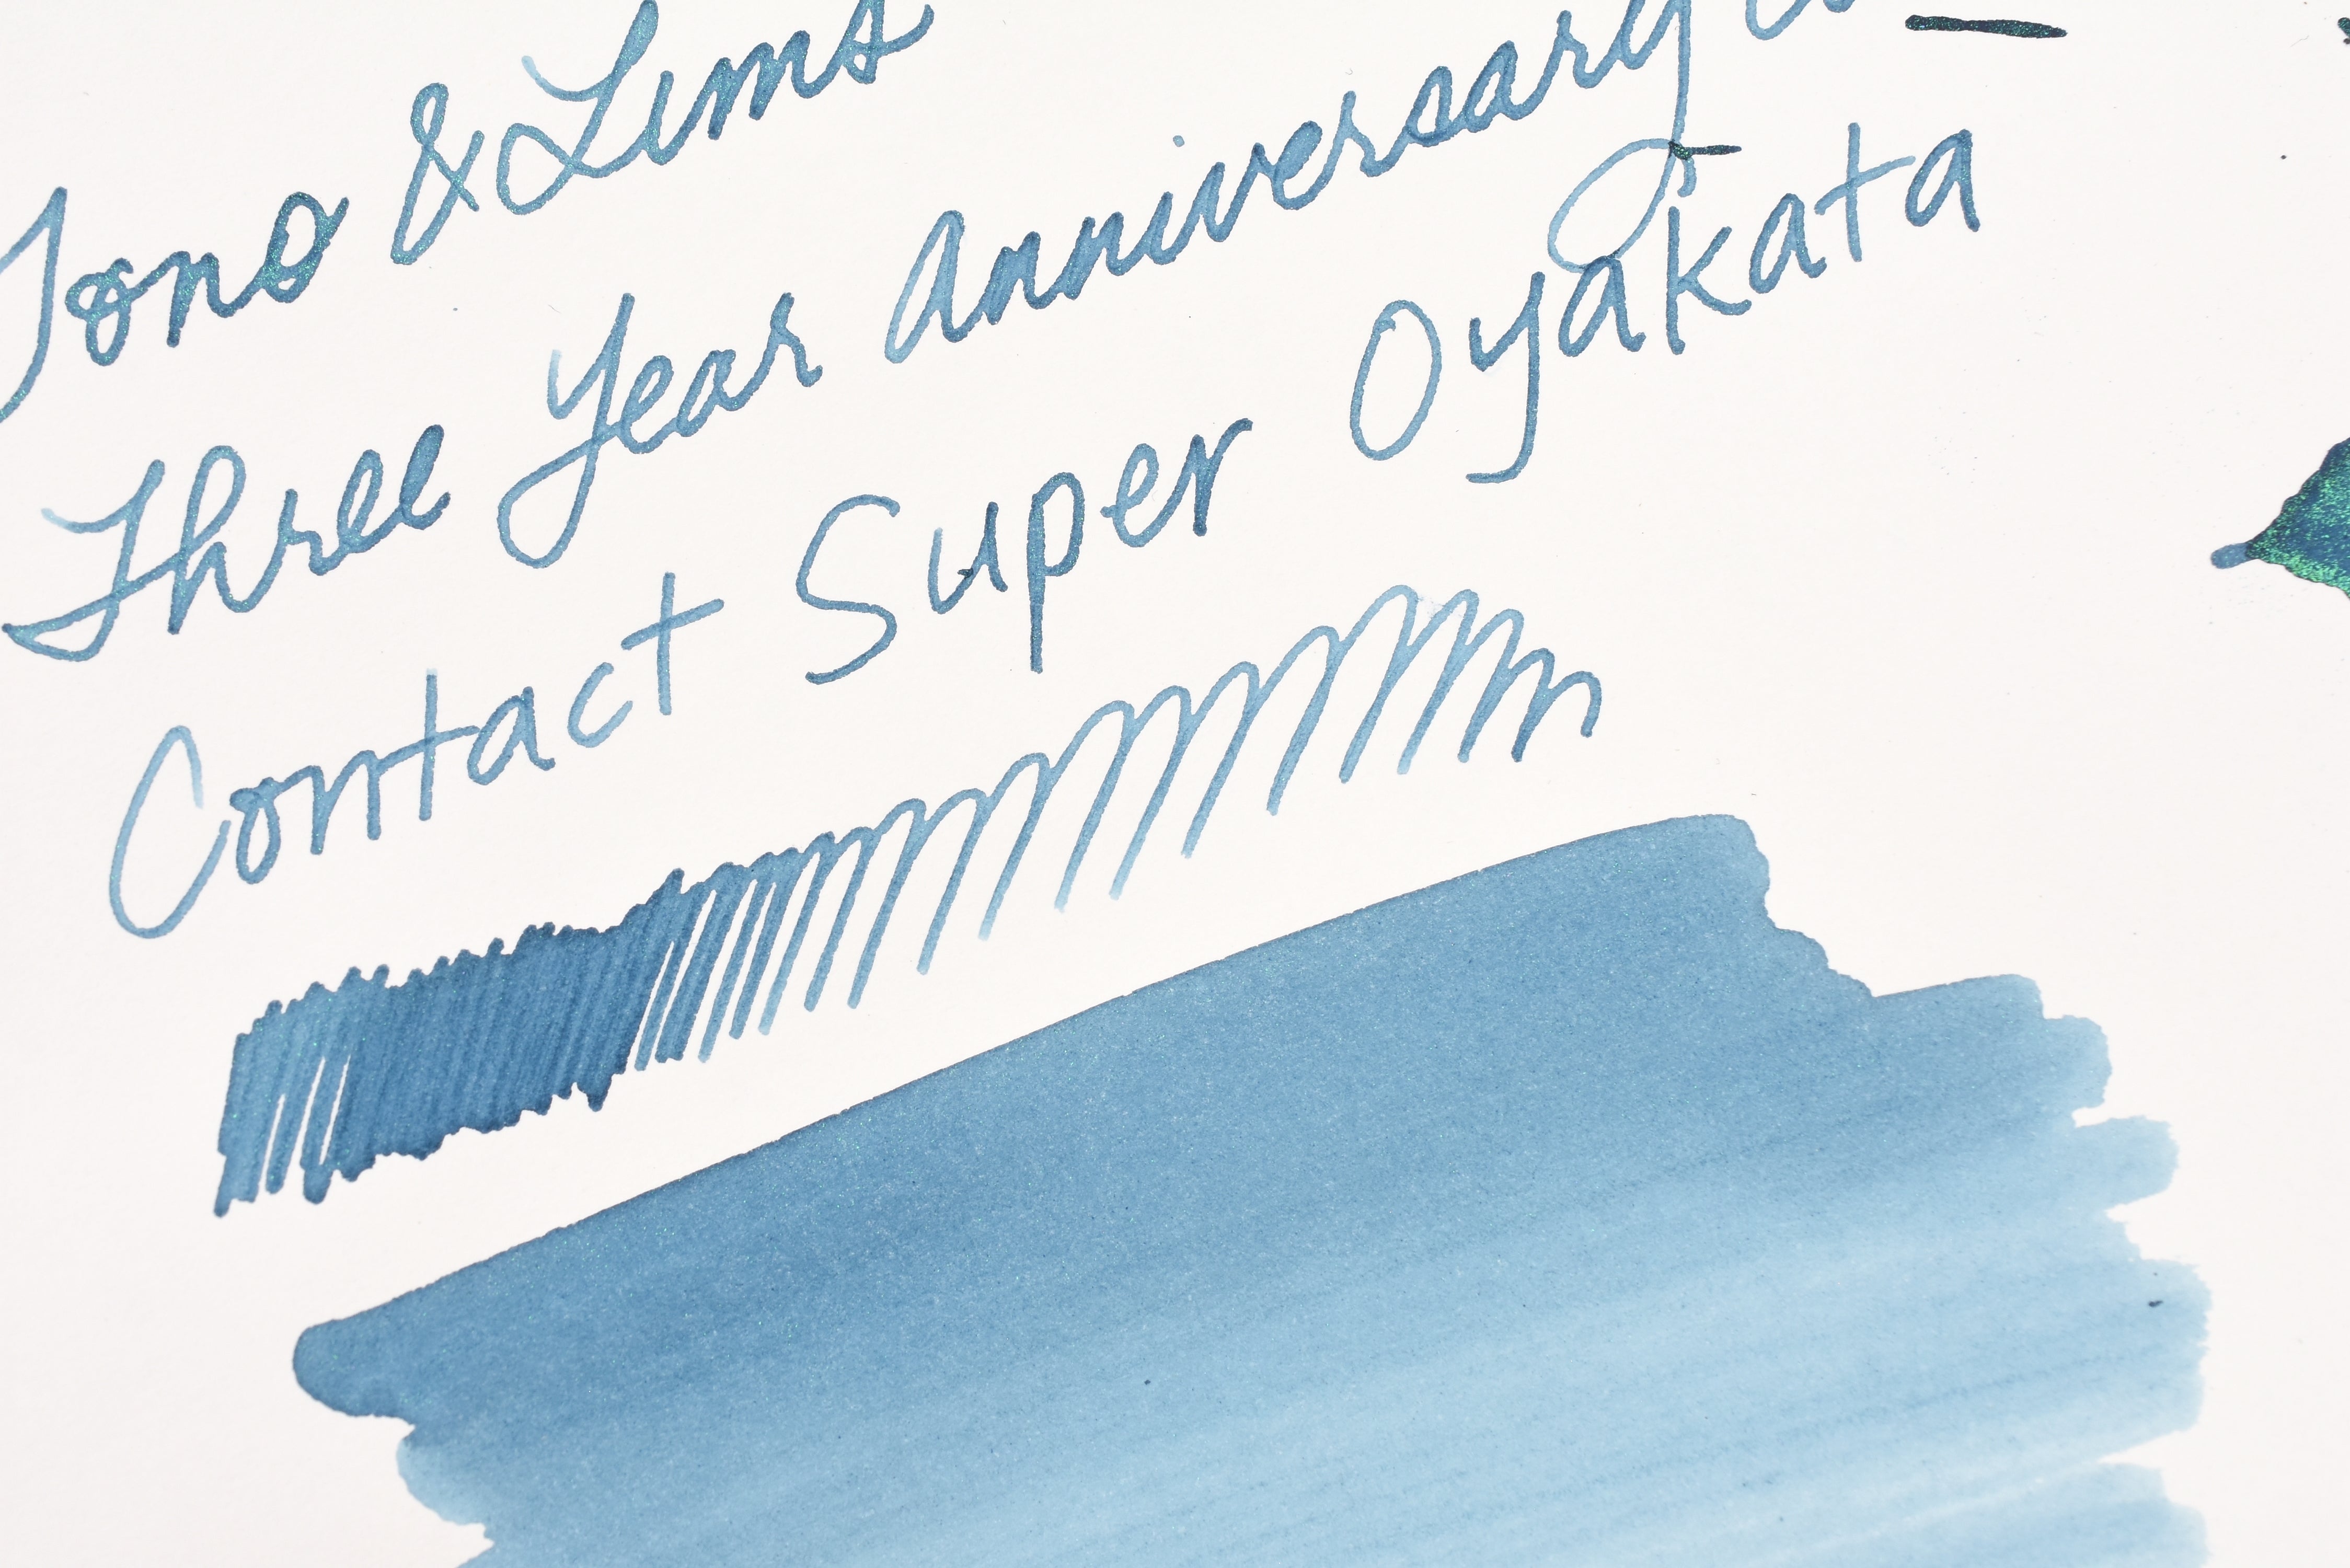 Tono & Lims
Three Year Anniversary
Contact Super Oyakata